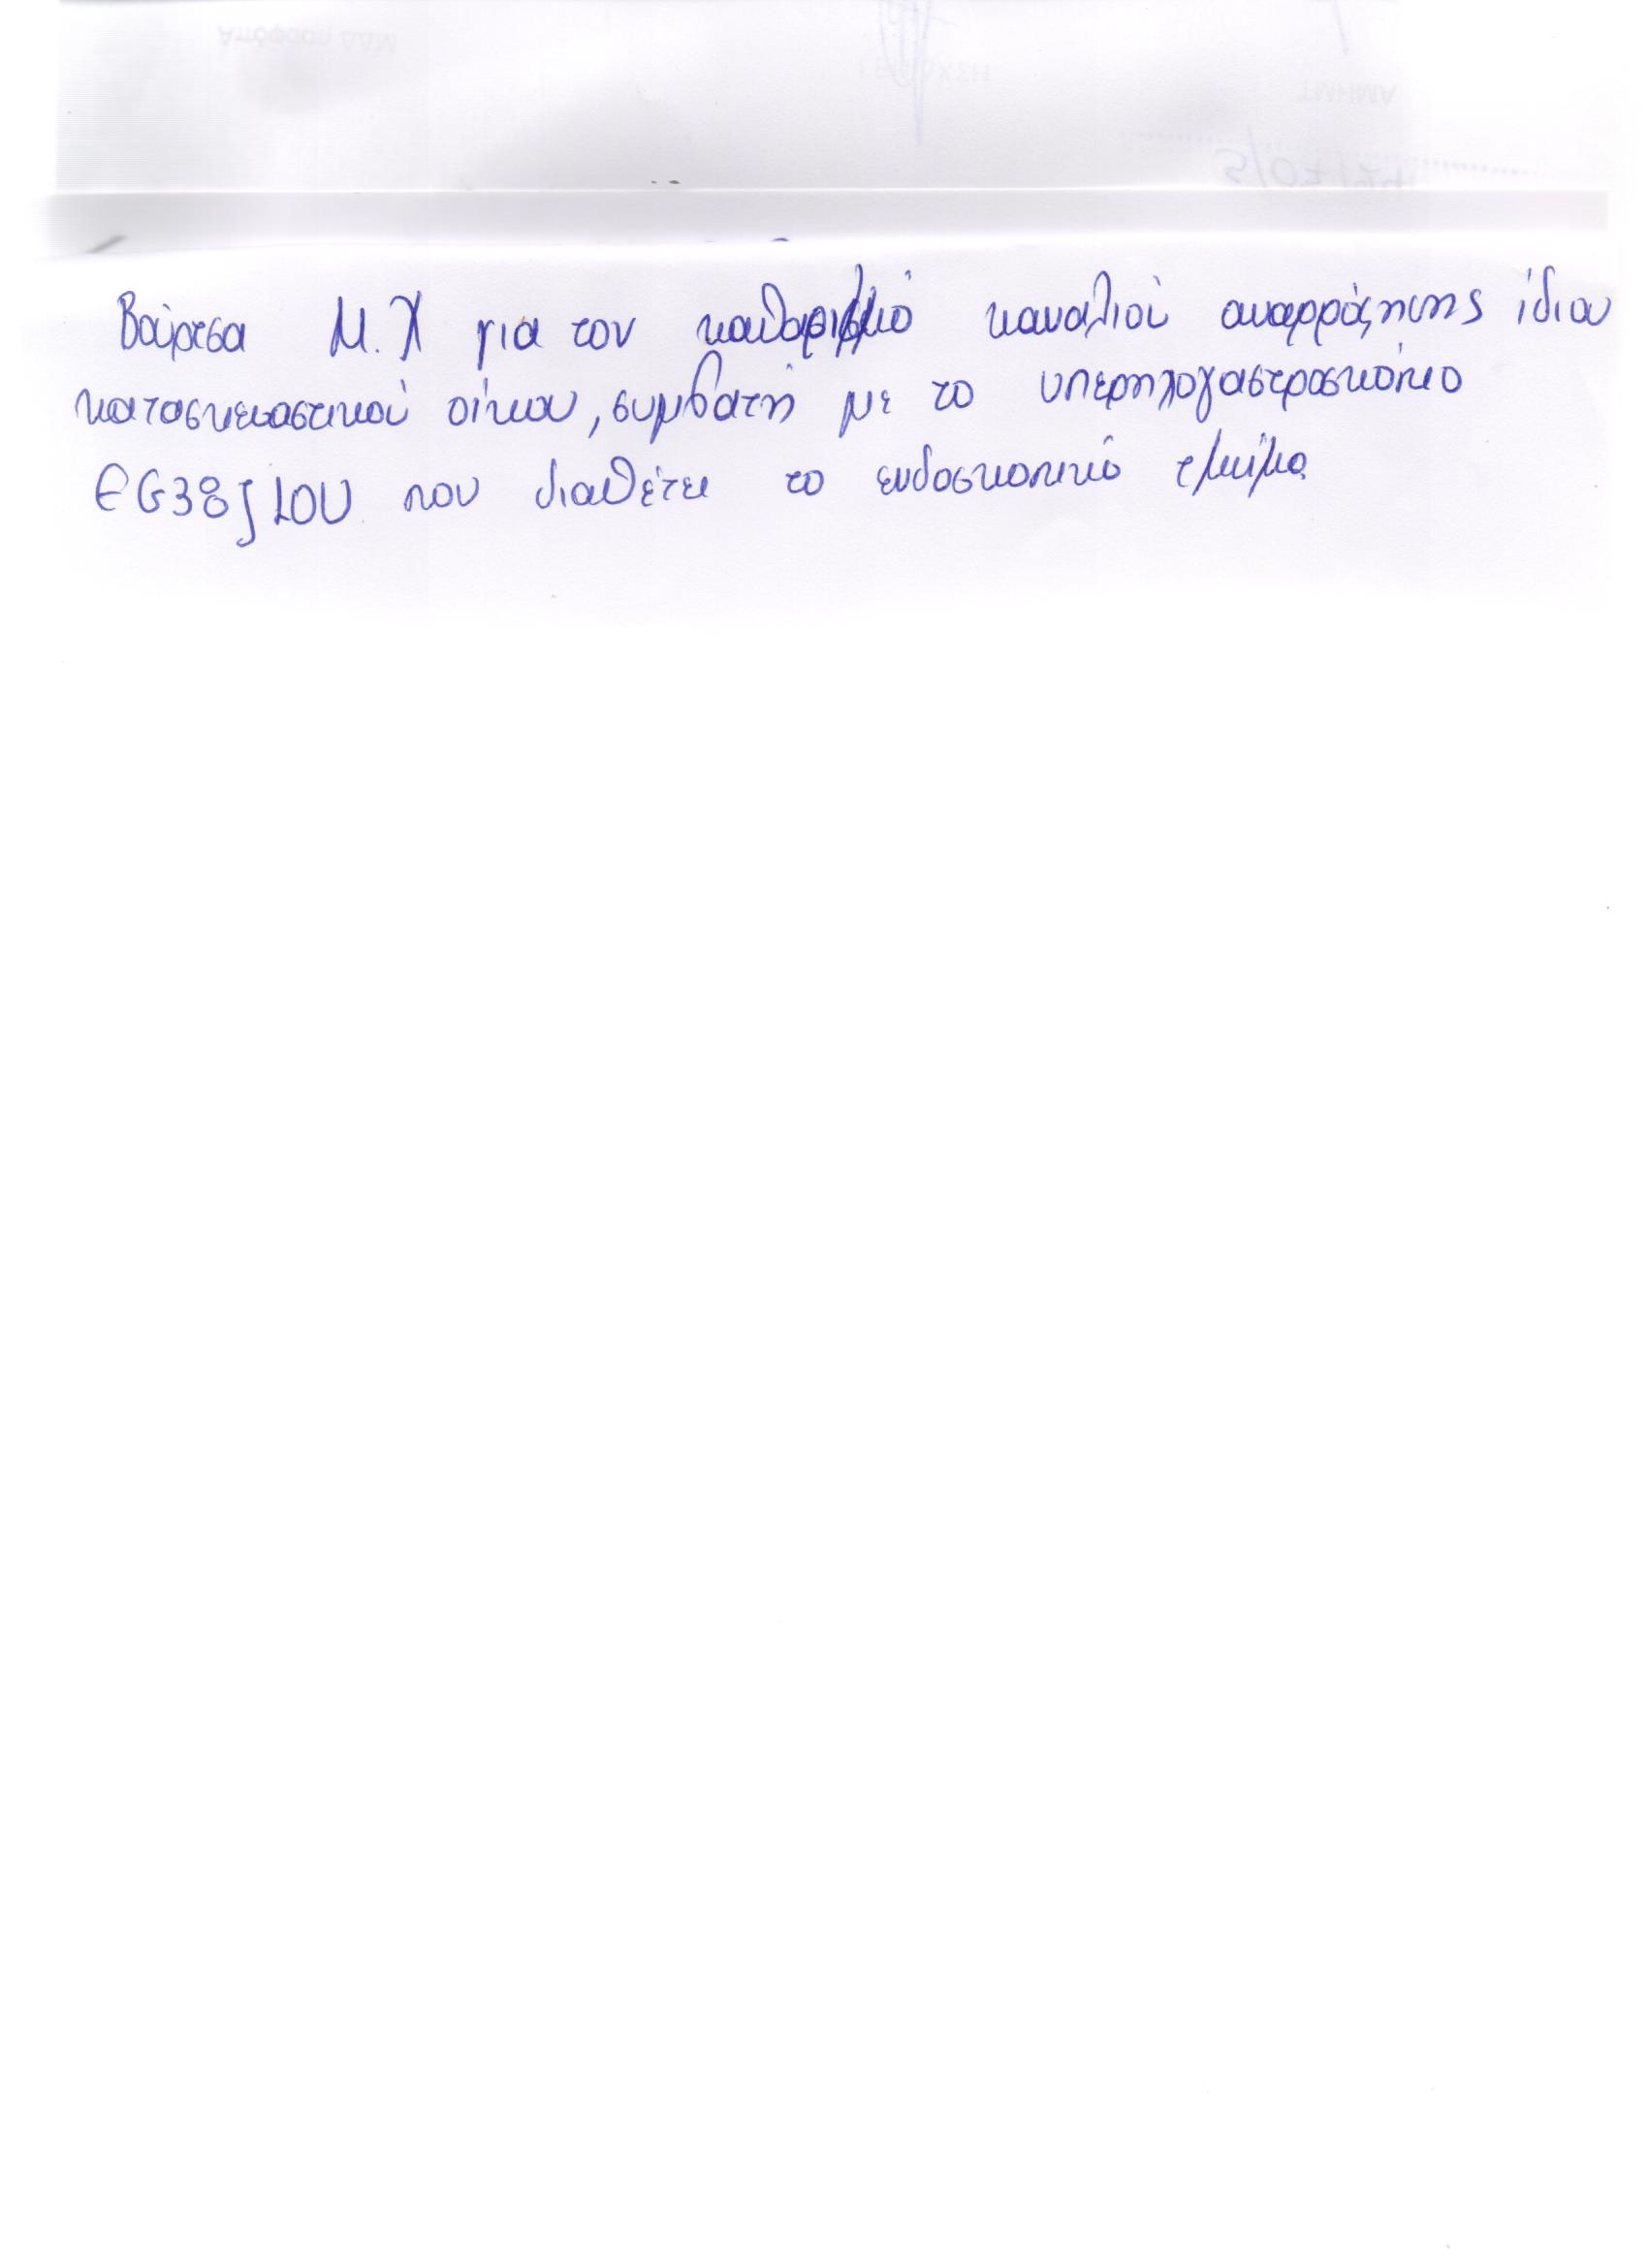 Βούρτσα Μ.Χ για τον καθαρισμό καναλιού αναρρόφησης ίδιου
κατασκευαστικού οίκου, συμβατή με το υπερηχογαστροσκόπιο
EG38J10U που διαθέτει το ενδοσκοπικό τμήμα